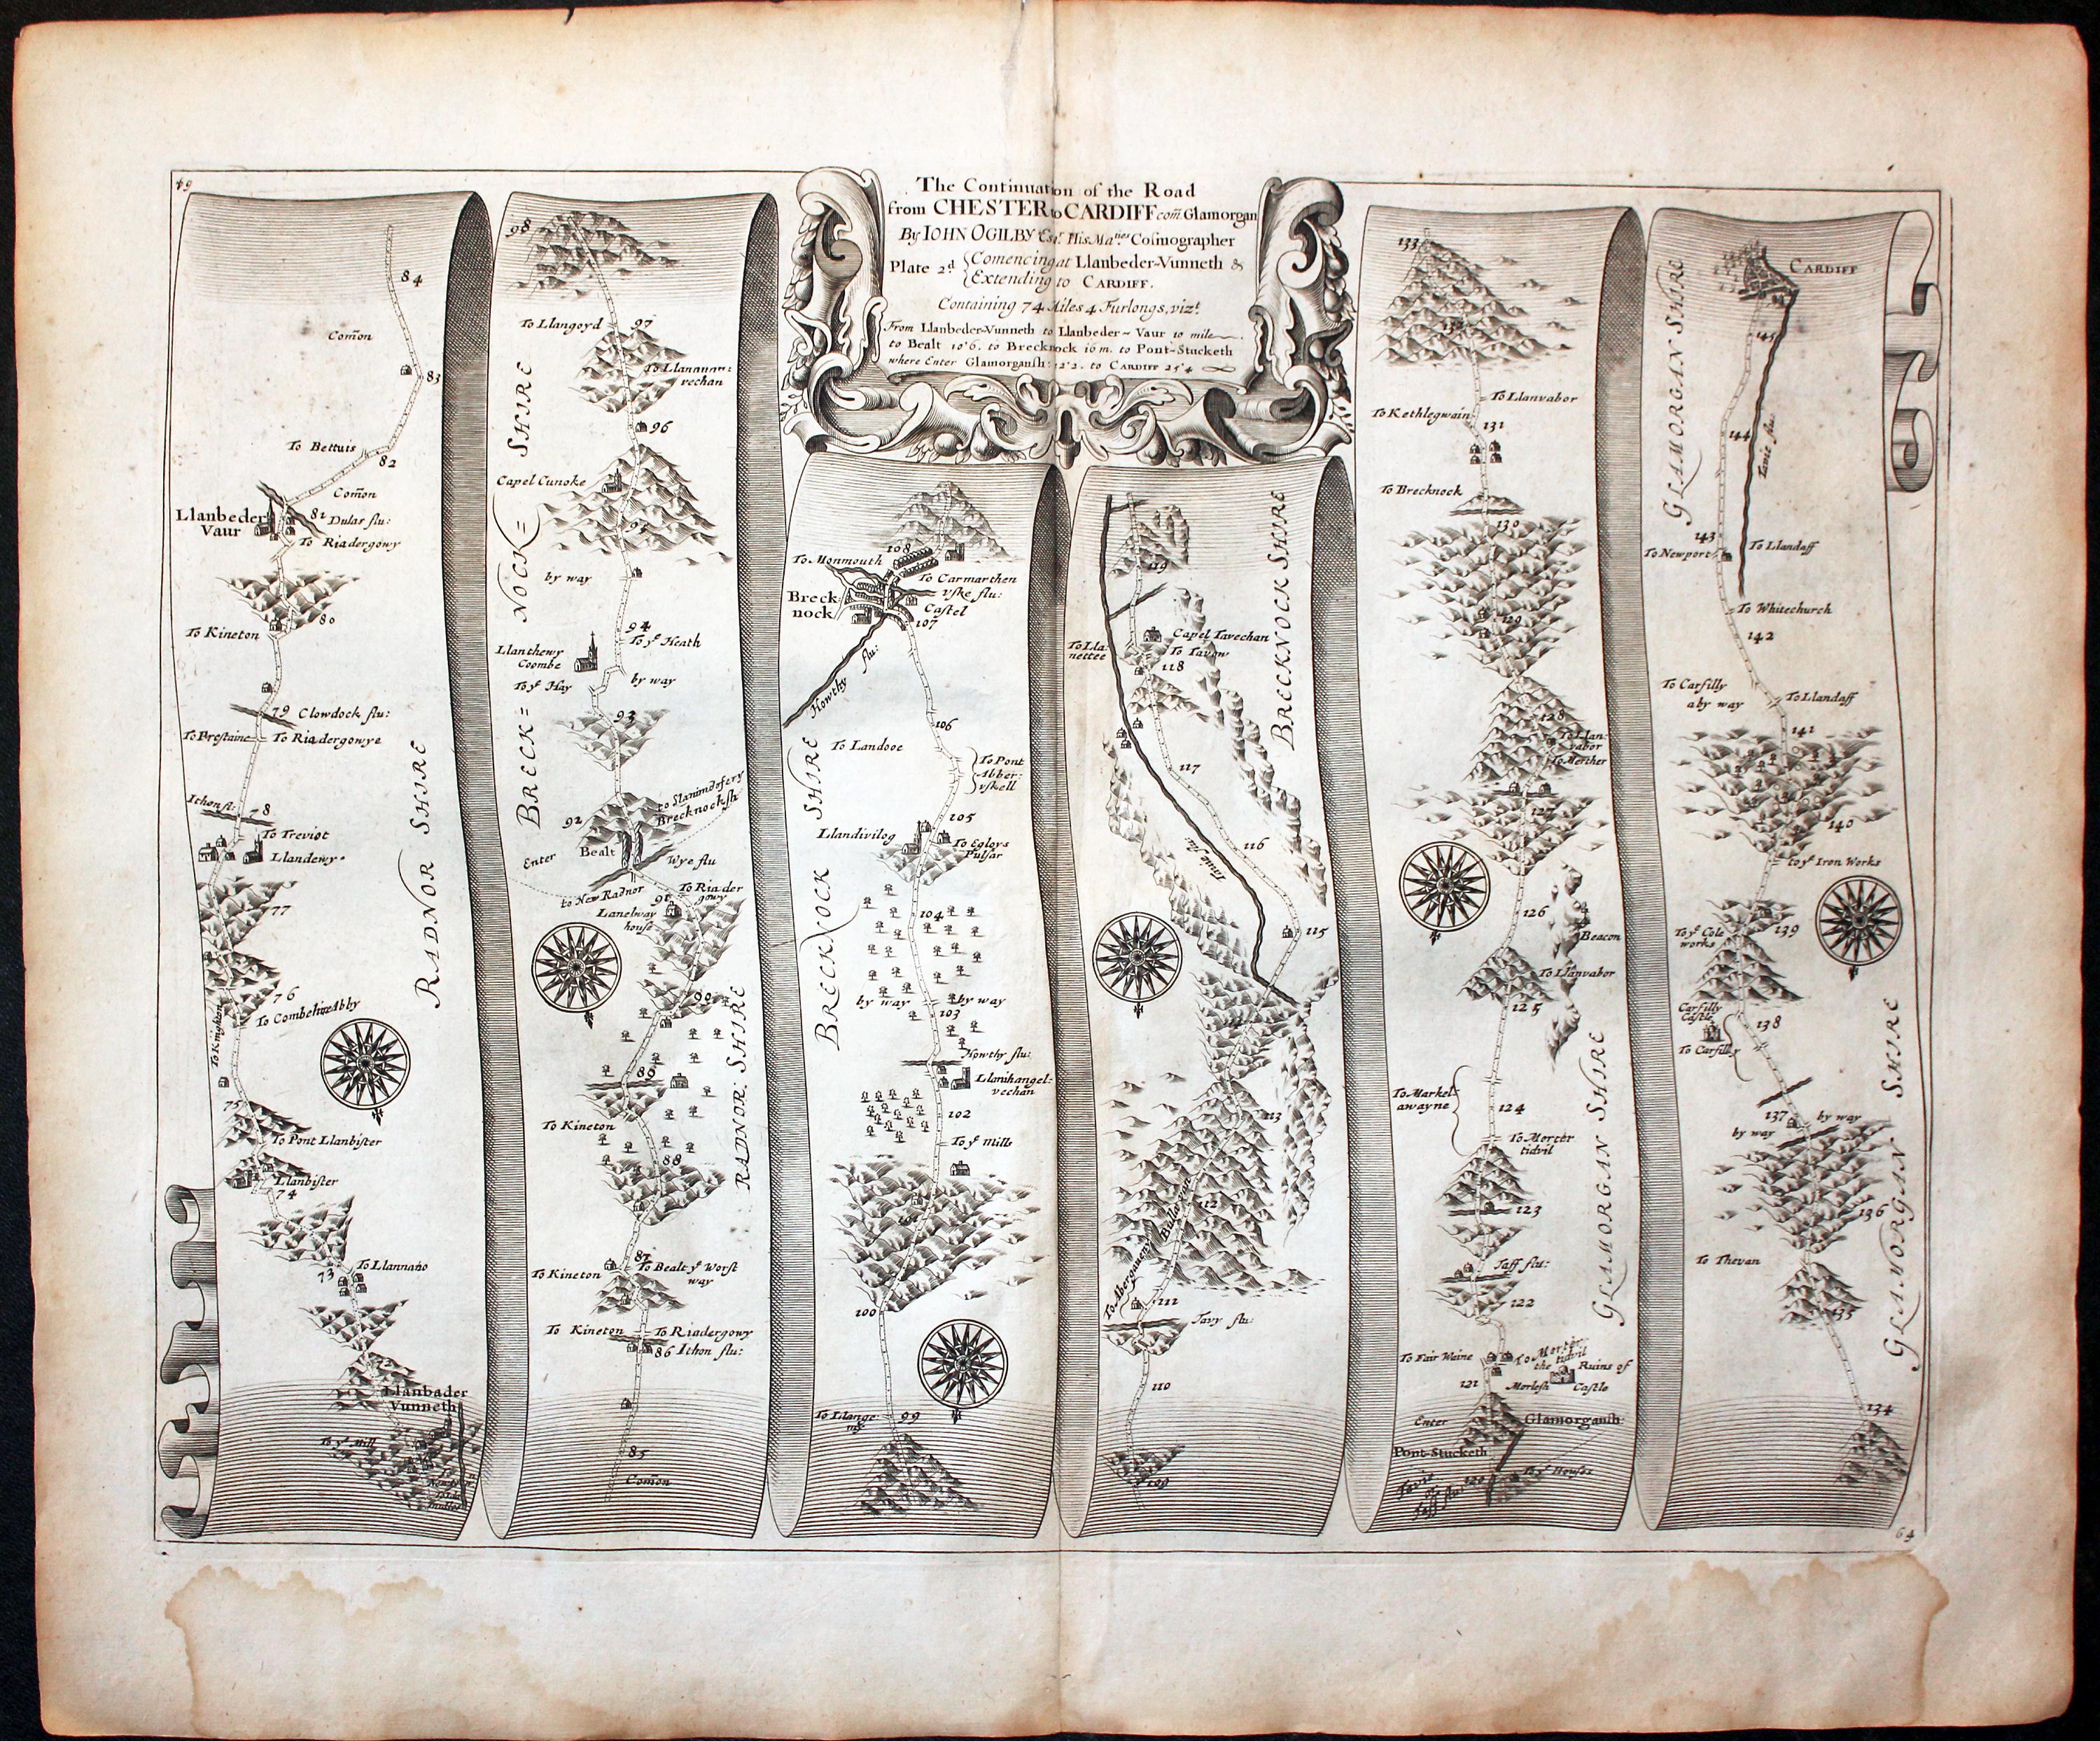 64
The Continuation of the Road
from CHESTER to CARDIFF com̃ Glamorgan
By IOHN OGILBY Esqr. His Ma.ties Cosmographer
Plate 2d Comencing at Llanbeder-Vunneth &
Extending to CARDIFF.
Containing 74 Miles 4 Furlongs, vizt.
From Llanbeder-Vunneth to Llanbeder-Vaur 10 mile
to Bealt 10'6. to Brecknock 16 m. to Pont-Stucketh
where Enter Glamorgansh: 12'2. to CARDIFF 25'4
84
Com̃on
83
To Bettuis
82
Com̃on
Llanbeder
Vaur
81
Dulas flu:
To Riadergowy
80
To Kineton
79
Clowdock flu:
To Prestaine
To Riadergowye
Ithon fl:
8
To Treviot
Llandewy
RADNOR SHIRE
77
76
To Combehir Abby
To Knighton
75
To Pont Llanbister
Llanbister
74
73
To Llannano
Llanbader
Vunneth
To ye Mill
98
To Llangoyd
97
To Llananar:
vechan
96
Capel Cunoke
95
by way
BRECK=NOCK=SHIRE
94
To ye Heath
Llanthewy
Coombe
To ye Hay
by way
93
92
to Llanimdofery
Brecknocksh
Enter
Bealt
Wye flu
to New Radnor
91
To Riader
gowy
Lanelway
house
90
RADNOR: SHIRE
89
To Kineton
88
87
To Kineton
To Bealt ye Worst
way
To Kineton
To Riadergowy
86
Ithon flu:
85
Com̃on
108
To Monmouth
To Carmarthen
Vske flu:
Breck
nock
Castel
107
Howthy flu:
106
To Landooe
To Pont
Abber:
vskell
BRECKNOCK SHIRE
105
Llandivilog
To Egloys
Pulsar
104
by way
by way
103
Howthy flu:
Llanihangel:
vechan
102
To ye Mills
101
100
99
To Llange
ny
119
Capel Tavechan
To Lla
nettee
To Tavow
118
BRECKNOCK SHIRE
117
116
Tavie flu:
115
113
112
To Abergaueny
111
Tavy flu:
110
109
133
132
To Llanvabor
To Kethlegwain
131
To Brecknock
130
129
128
To Llan:
vabor
To Merther
127
126
Beacon
To Llanvabor
125
To Markel
awayne
124
To Mercer
tidvil
123
Taff flu:
122
GLAMORGAN SHIRE
To Fair Waine
Ruins of
Morlesh Castle
121
Enter Glamorgansh
Pont-Stucketh
120
CARDIFF
145
144
Tavie flu:
GLAMORGAN SHIRE
143
To Newport
To Llandaff
To Whitechurch
142
To Carfilly
a by way
To Llandaff
141
140
to ye Iron Works
To ye Cole
works
139
Carfilly
Castle
138
To Carfilly
137
by way
by way
136
To Thevan
135
GLAMORGAN SHIRE
134
64